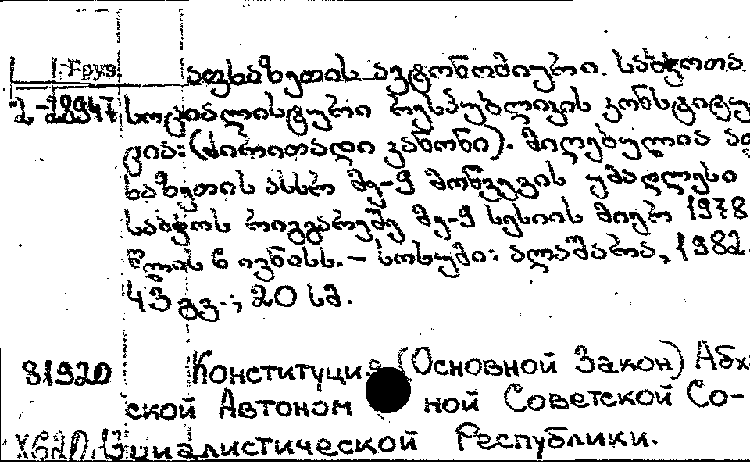 Груз. აფხაზეთის ავტონომიური საბჭოთა
2-28947 სოციალისტური რესპუბლიკის კონსტიტუ
ცია: (ძირითადი კანონი). მიღებულია აფ
ხაზეთის ასსრ მე-9 მოწვევის უმაღლესი
საბჭოს რიგგარეშე მე-9 სესიის მიერ 1978
წლის 6 ივნისს. – სოხუმი: ალაშარა, 1982.
43 გვ.; 20 სმ.
81920 Конституция (Основной Закон) Абх
ской Автоном ной Советской Со-
циалистической Республики.